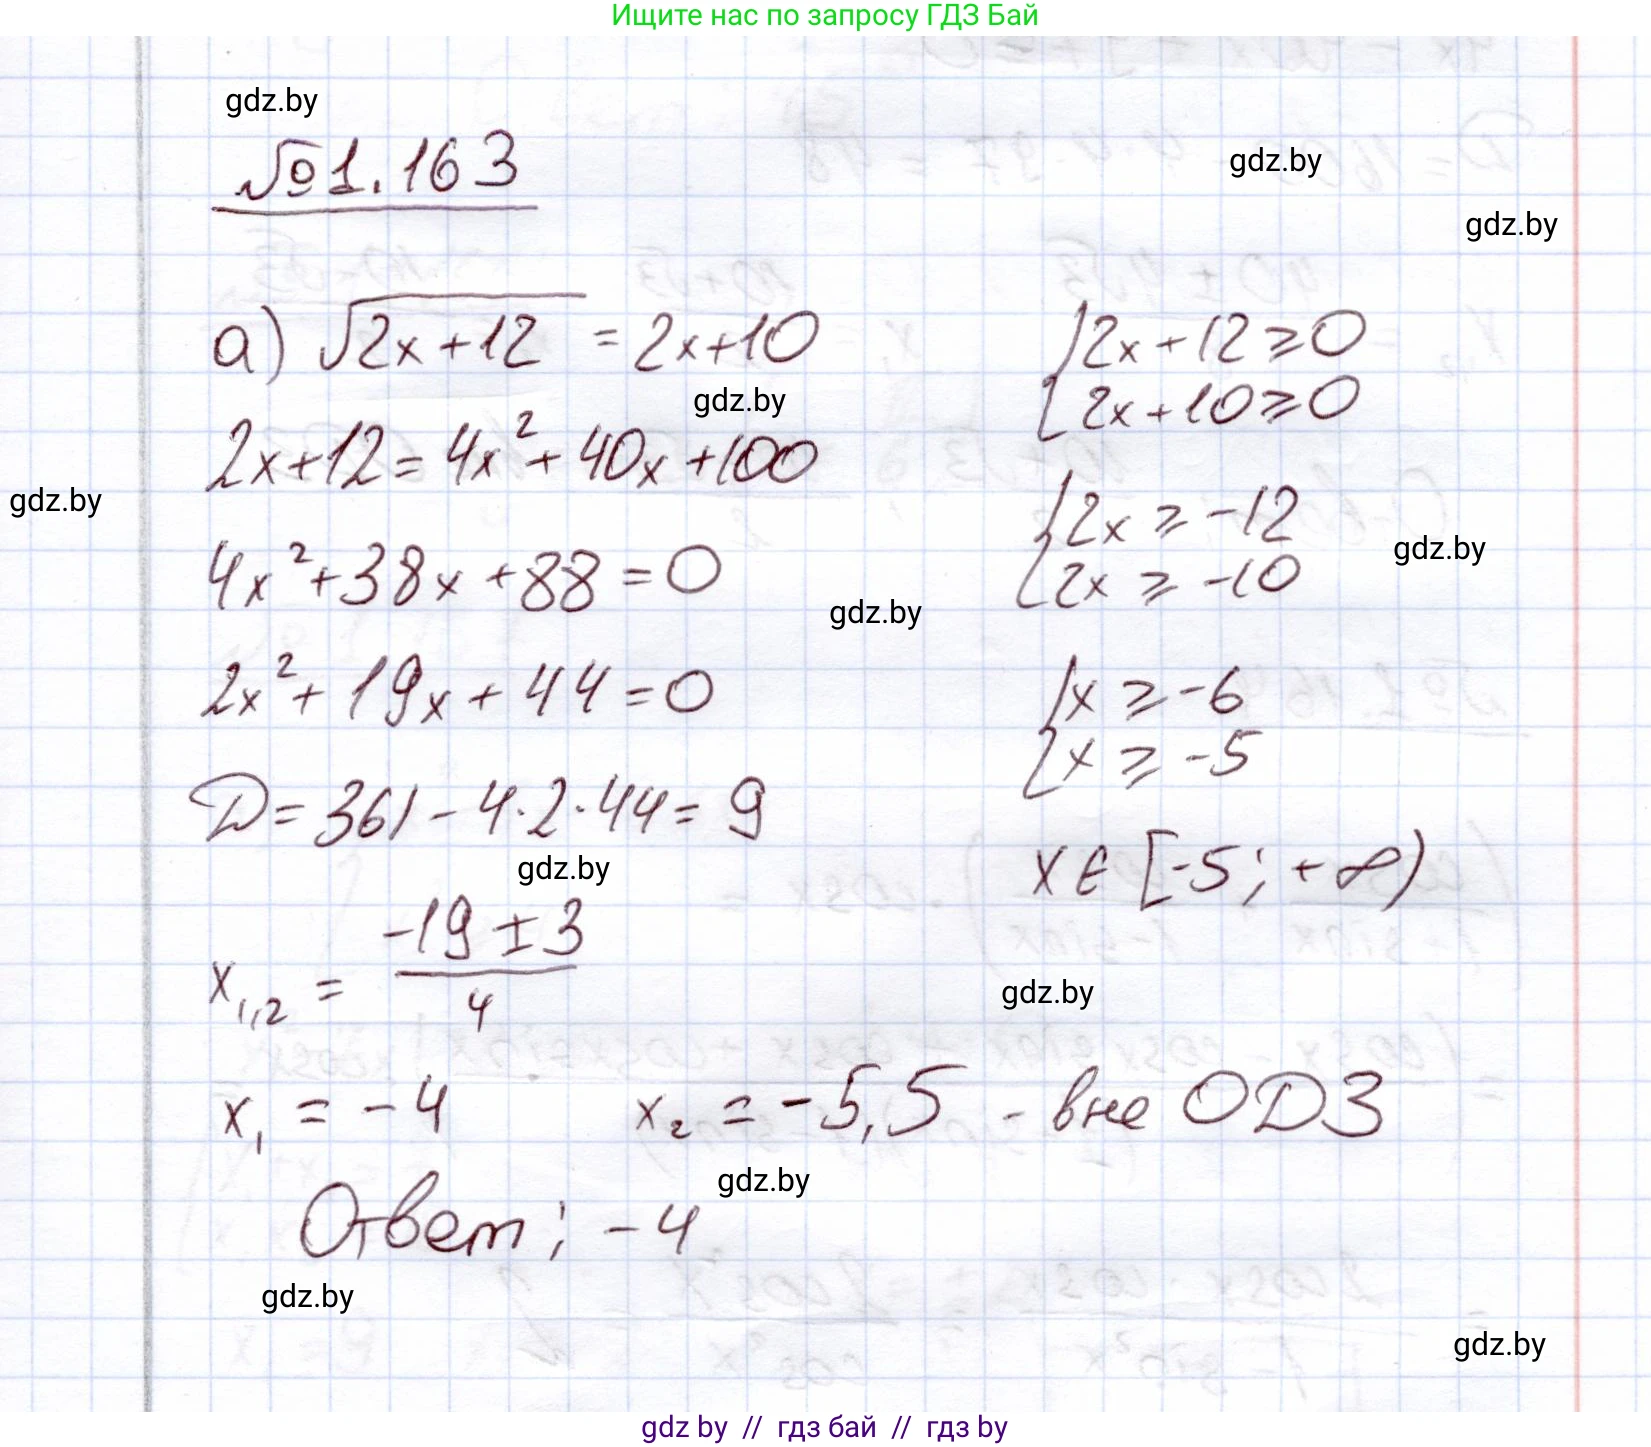 Ищите нас по запросу ГДЗ Бай
gdz.by
№1.163
gdz.by
gdz.by
а) √(2x+12) = 2x+10
{2x+12⩾0
2x+10⩾0
gdz.by
2x+12=4x²+40x+100
{2x⩾-12
2x⩾-10
gdz.by
gdz.by
4x²+38x+88=0
gdz.by
2x²+19x+44=0
{x⩾-6
x⩾-5
D=361-4·2·44=9
gdz.by
x∈[-5;+∞)
x₁,₂ = (-19±3)/4
gdz.by
x₁ = -4 x₂ = -5,5 - вне ОДЗ
gdz.by
Ответ: -4
gdz.by
gdz.by
gdz by // гдз бай // гдз by